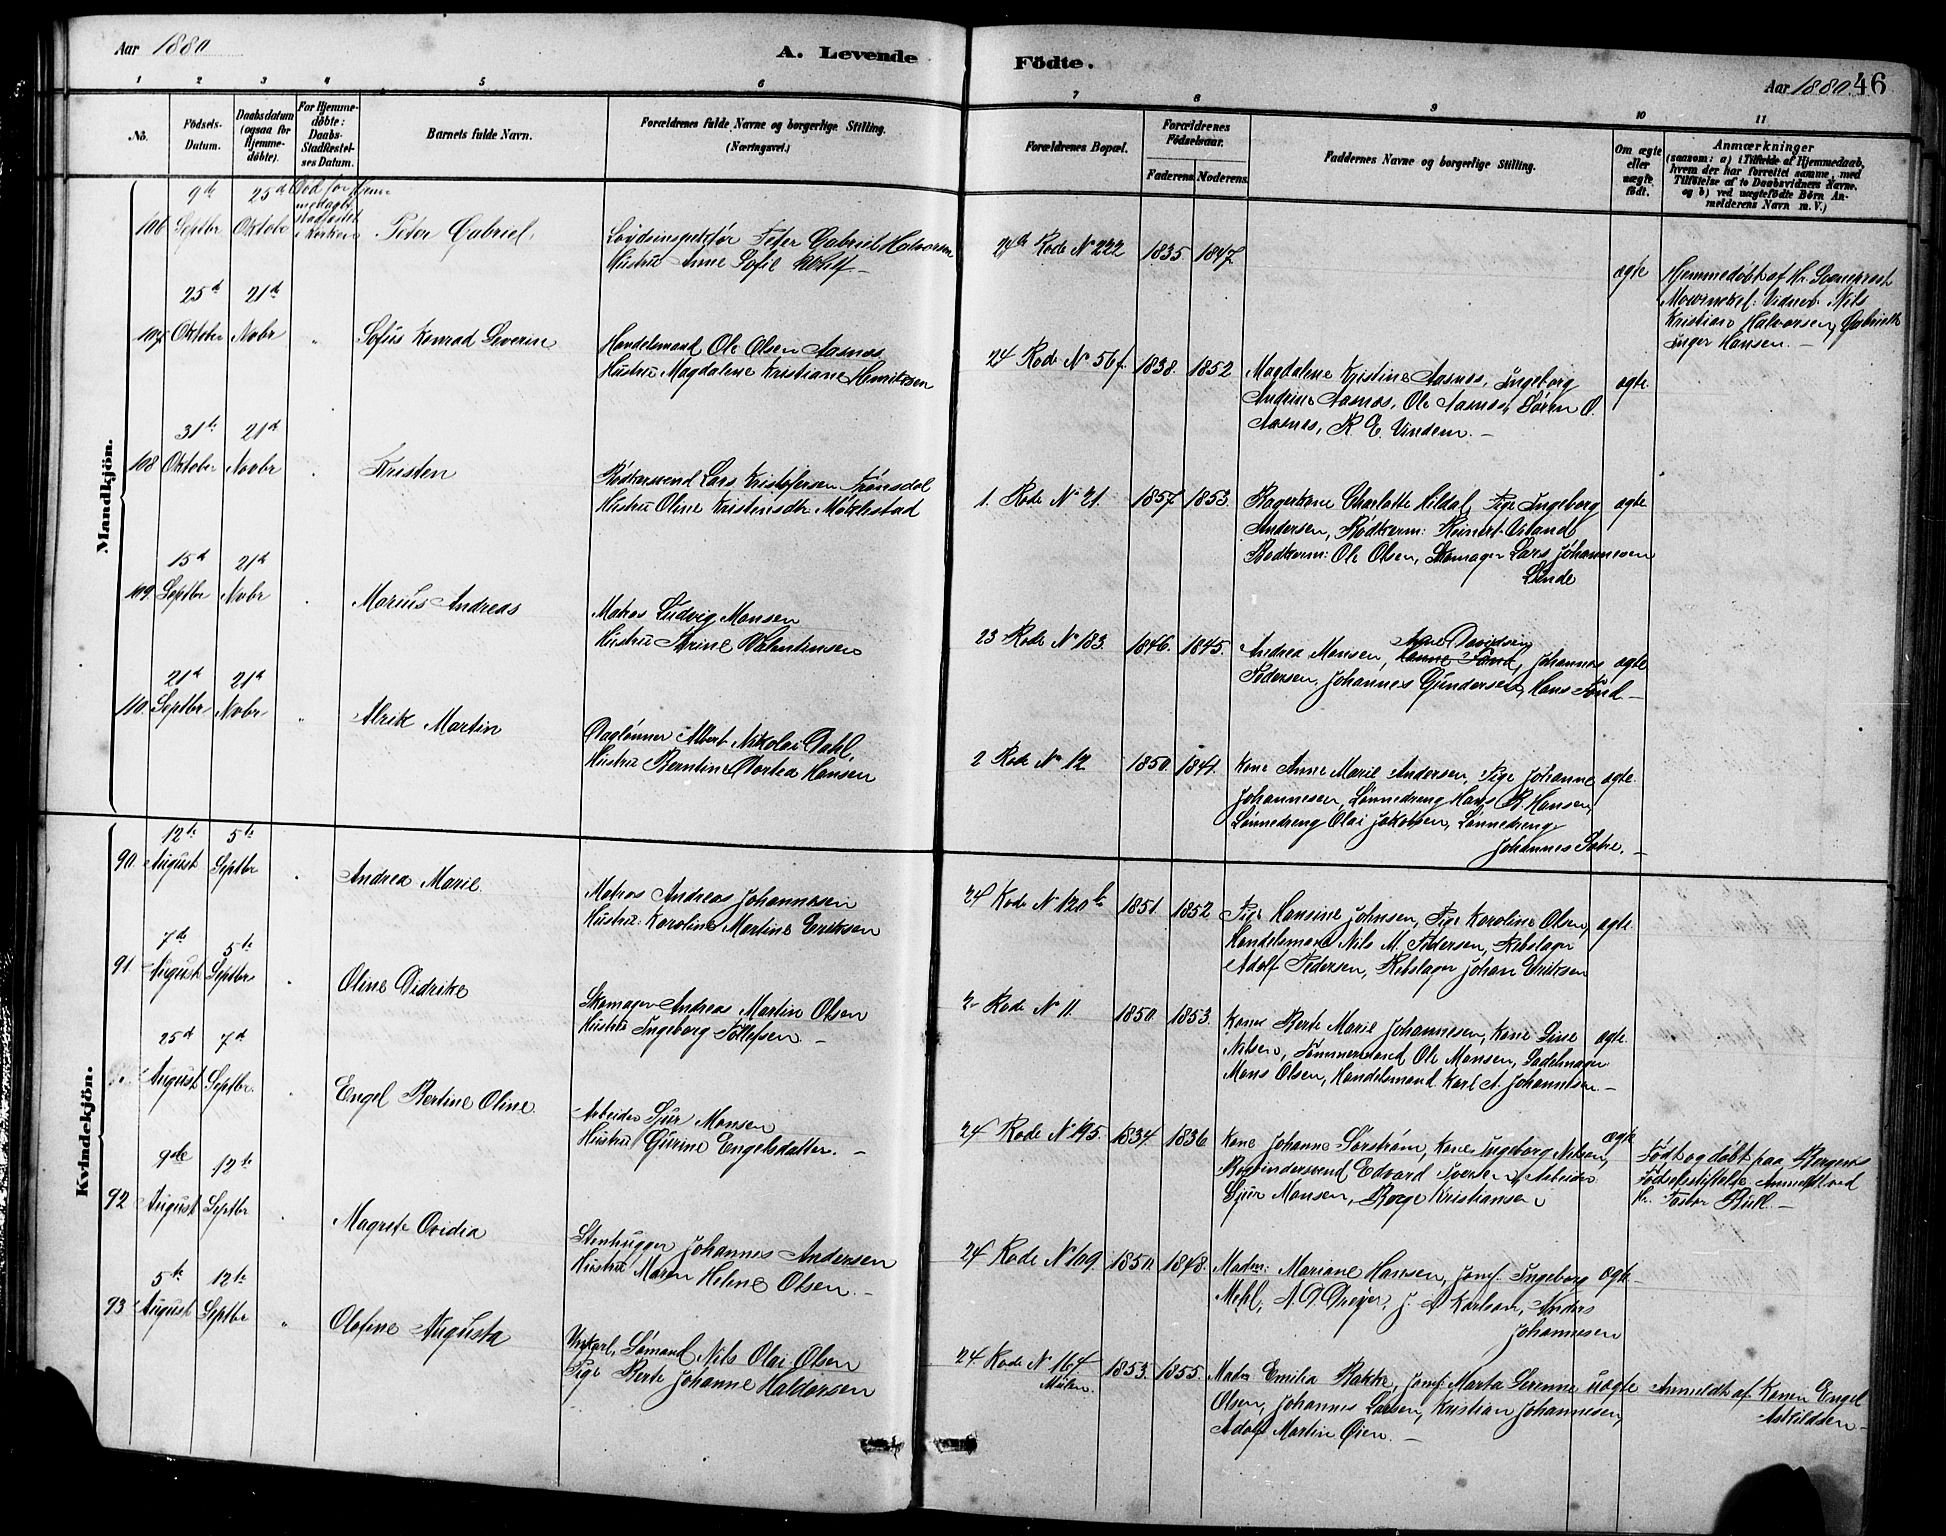 Aar 1880
A. Levende
Födte.
Aar 1880. 46
1 2 3 4 5 6 7 8 9 10 11
No.
Födsels-Datum.
Daabsdatum (ogsaa for Hjemmedöbte).
For Hjemmedöbte: Daabs-Stadfæstelses Datum.
Barnets fulde Navn.
Forældrenes fulde Navne og borgerlige Stilling. (Næringsvei.)
Forældrenes Bopæl.
Forældrenes Födselsaar.
Faderens Moderens
Faddernes Navne og borgerlige Stilling.
Om ægte eller uægte födt.
Anmærkninger
(saasom: a) i Tilfælde af Hjemmedaab,
hvem der har forrettet samme, med
Tilföielse af to Daabsvidners Navne,
og b) ved uægtefödte Börn Anmelderens Navn m. V.)
Mandkjön.
106 9de Septbr 25d Oktober
Peter Gabriel
Lodsinspektør Peter Gabriel Halvorsen
Hustru Anne Sofie Wolff
24de Rode No 222 1835 1847
ægte
Hjemmedöbt af Hr. Sognepræst
Mowinckel: Vidner: Nils
Kristian Halvorsen, Gabrielle
Inger Hansen. –
107 25d Oktober 21d Novbr "
Sofus Konrad Severin
Handelsmand Ole Olsen Aasnes
Hustru Magdalene Kristiane Henriksen
24 Rode No 56f. 1838. 1852
Magdalene Kristine Aasnes, Ingeborg
Andrine Aasnes, Ole Aasnes, Sören O.
Aasnes, R. E. Vindem. –
ægte.
108 31te Oktober 21d Novbr "
Kristen
Bödkersvend Lars Kristofersen
Hustru Oline Kristensdtr
1. Rode No 21. 1857. 1853.
Bagerkone Charlotte Hildal, Pige Ingeborg
Andersen, Bödkerm: Reinert
Bödkerm: Ole Olsen, Skomager Lars Johannesen
Lunde
ægte
109 15d Septbr 21d Novbr "
Marius Andreas
Matros Ludvig Monsen
Hustru Valentinsen
23 Rode No 183. 1846. 1845.
Andrea Monsen, Davidsen, Johannes
Pedersen, Johannes Gundersen, Hans
ægte
110. 21d Septbr 21d Novbr "
Alrik Martin
Daglønner Albert Nikolai Dahl,
Hustru Berntine Dortea Hansen
2 Rode No 12 1850. 1841.
Kone Anne Marie Andersen, Pige Johanne
Johannesen, Lønnedreng Hans B. Hansen,
Lønnedreng Olai Jakobsen, Lønnedreng
Johannes
ægte.
Kvindekjön.
90. 12te August 5te Septbr "
Andrea Marie
Matros Andreas Johannesen
Hustru Karoline Martine Eriksen
24 Rode No 120b 1851. 1852
Pige Hansine Johnsen, Pige Karoline Olsen,
Handelsmand Nils M. Pedersen, Rebslager
Adolf Pedersen, Rebslager Johan Eriksen
ægte.
91. 7de August 5te Septbr "
Oline Didrike
Skomager Andreas Martin Olsen
Hustru Ingeborg Tollefsen –
2 Rode No 11. 1850. 1853.
Kone Berte Marie Johannesen, Kone Sine
Nilsen, Tømmermand Ole Monsen, Sadelmager
Mons Olsen, Handelsmand Karl A. Johannesen –
ægte.
25d August 7d Septbr. "
Engel Bertine Oline
Arbeider Sjur Monsen
Hustru Gurine Engelsdatter. –
24 Rode No 195. 1834. 1836
Kone Johanne Sörström, Kone Ingeborg Nilsen,
Bogbindersvend Edvard Iversen, Arbeider
Sjur Monsen, Börge Kristiansen
ægte
Født og döbt paa Bergens
Fødselsstiftelse, Anmeldt ved
Hr. Pastor Bull. –
92 9de August 12te Septbr "
Magrete Ovidia
Stenhugger Johannes Andersen
Hustru Maren Helene Olsen. –
24 Rode No 109. 1850. 1848.
Madm: Mariane Hansen, Jomf. Ingeborg
Mehl, A. D. Dreyer, J. A. Karlsen, Anders
Johannesen
ægte.
93 5te August 12te Septbr "
Olefine Augusta
Ungkarl, Sømand Nils Olai Olsen
Pige Berte Johanne Haldorsen
24 Rode No 164 1853. 1855.
Mølen.
Madm Emilia Bakke, Jomf. Marta Serenne
Olsen, Johannes Larsen, Kristian Johannesen,
Adolf Martin Øien. –
uægte
Anmeldt af Konen Engel
Askildsen –